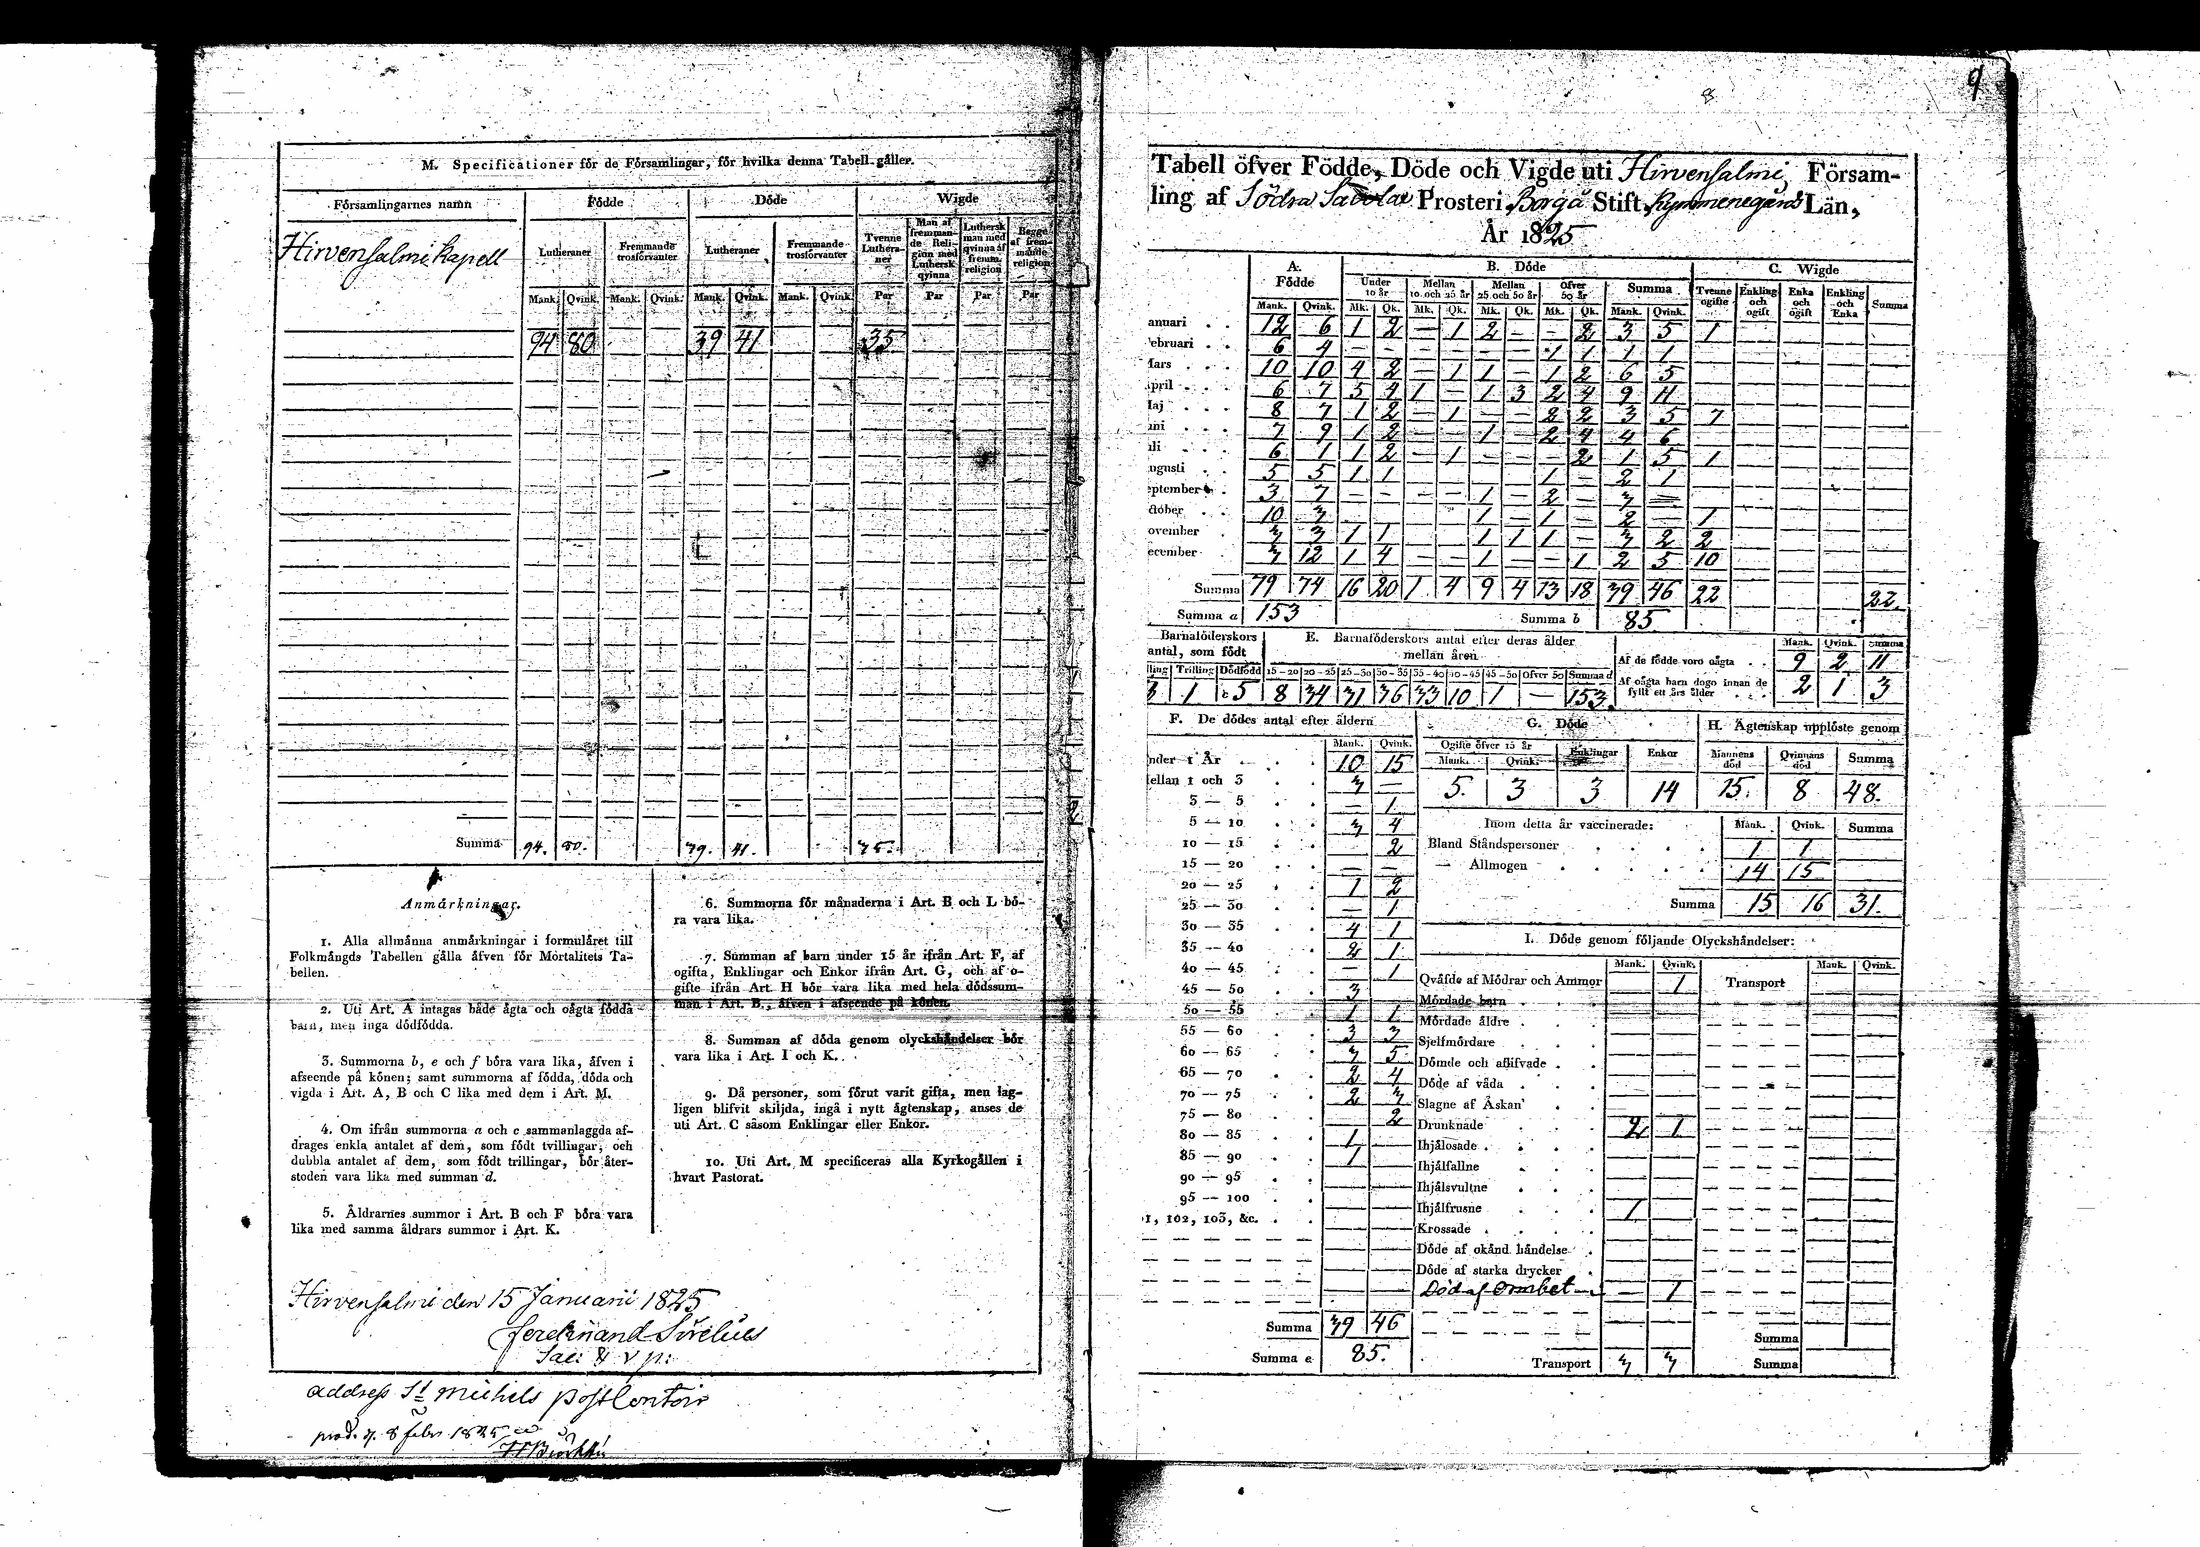 9
8
M. Specificationer för de Församlingar, för hvilka denna Tabell gäller.
Församlingarnes namn Födde Döde Wigde
Lutheraner Fremmande trosförvanter Lutheraner Fremmande trosförvanter Tvenne Lutheraner Man af fremmande Religion med Luthersk qvinna Luthersk man med qvinna af fremm. religion Begge af fremmande religion
Mank. Qvink. Mank. Qvink. Mank. Qvink. Mank. Qvink. Par Par Par Par
Hirvensalmi Kapell
94 80 39 41 35
Summa 94. 80. 39. 41. 35.
Anmärkningar.
1. Alla allmänna anmärkningar i formuläret till
Folkmängds Tabellen gälla äfven för Mortalitets Ta-
bellen.
2. Uti Art. A intagas både ägta och oägta födda
barn, men inga dödfödda.
3. Summorna b, e och f böra vara lika, äfven i
afseende på könen; samt summorna af födda, döda och
vigda i Art. A, B och C lika med dem i Art. M.
4. Om ifrån summorna a och c sammanlaggda af-
drages enkla antalet af dem, som födt tvillingar, och
dubbla antalet af dem, som födt trillingar, bör åter-
stoden vara lika med summan d.
5. Åldrarnes summor i Art. B och F böra vara
lika med samma åldrars summor i Art. K.
6. Summorna för månaderna i Art. B och L bö-
ra vara lika.
7. Summan af barn under 15 år ifrån Art. F, af
ogifta, Enklingar och Enkor ifrån Art. G, och af o-
gifte ifrån Art. H bör vara lika med hela dödssum-
man i Art. B., äfven i afseende på könen.
8. Summan af döda genom olyckshändelser bör
vara lika i Art. I och K.
9. Då personer, som förut varit gifta, men lag-
ligen blifvit skiljda, ingå i nytt ägtenskap, anses de
uti Art. C såsom Enklingar eller Enkor.
10. Uti Art. M specificeras alla Kyrkogällen i
hvart Pastorat.
Hirvensalmi den 15 Januarii 1825
Ferdinand Sirelius
Sac: & V p:
address St Michels postContoir
prod. d. 8 febr. 1825
Tabell öfver Födde, Döde och Vigde uti Hirvensalmi Försam-
ling af Södra Savolax Prosteri, Borgå Stift, Kymmenegårds Län,
År 1825
A. Födde B. Döde C. Wigde
Under 10 år Mellan 10 och 25 år Mellan 25 och 50 år Öfver 50 år Summa Tvenne ogifte Enkling och ogift Enka och ogift Enkling och Enka Summa
Mank. Qvink. Mk. Qk. Mk. Qk. Mk. Qk. Mk. Qk. Mank. Qvink.
anuari 12 6 1 2 — 1 2 — — 2 3 5 1
ebruari 6 4 — — — — — — 1 1 1 1
ars 10 10 4 2 — 1 1 — 1 2 6 5
pril 6 7 5 4 1 — 1 3 2 4 9 11
aj 8 7 1 2 — 1 — — 2 2 3 5 7
ni 7 9 1 2 — — 1 — 2 4 4 6
li 6 1 1 2 — 1 — — — 2 1 5 1
ugusti 5 5 1 1 1 — 2 1
eptember 3 7 — — — — 1 — 2 — 3 —
ctober 10 3 1 — 1 — 2 — 1
ovember 3 3 1 1 1 1 1 — 3 2 2
ecember 3 12 1 4 — — 1 — — 1 2 5 10
Summa 79 74 16 20 1 4 9 4 13 18 39 46 22 22.
Summa a 153 Summa b 85
Barnaföderskors antal, som födt E. Barnaföderskors antal efter deras ålder mellan åren Mank. Qvink. Summa
Af de födde voro oägta 9 2 11
Af oägta barn dogo innan de fyllt ett års ålder 2 1 3
lling Trilling Dödfödd 15—20 20—25 25—30 30—35 35—40 40—45 45—50 Öfver 50 Summa d
3 1 c 5 8 34 31 36 33 10 1 — 153.
F. De dödes antal efter åldern G. Döde H. Ägtenskap upplöste genom
Mank. Qvink. Ogifte öfver 15 år Enklingar Enkor Mannens död Qvinnans död Summa
Mank. Qvink.
5. 3 3 14 15. 8 48.
nder 1 År 10 15
ellan 1 och 3 3 —
3 — 5 — 1
5 — 10 3 4
10 — 15 2
15 — 20 — —
20 — 25 1 2
25 — 30 — 1
30 — 35 4 1
35 — 40 2 1
40 — 45 — 1
45 — 50 3
50 — 55 1 1
55 — 60 3 3
60 — 65 3 5
65 — 70 2 4
70 — 75 2 3
75 — 80 2
80 — 85 1
85 — 90 1
90 — 95
95 — 100
1, 102, 103, &c.
Summa 39 46
Summa e 85.
Inom detta år vaccinerade: Mank. Qvink. Summa
Bland Ståndspersoner 1 1
— Allmogen 14 15
Summa 15 16 31.
I. Döde genom följande Olyckshändelser:
Mank. Qvink. Mank. Qvink.
Qväfde af Mödrar och Ammor 1 Transport
Mördade barn
Mördade äldre
Sjelfmördare
Dömde och aflifvade
Döde af våda
Slagne af Åskan
Drunknade 2 1
Ihjälosade
Ihjälfallne
Ihjälsvultne
Ihjälfrusne 1
Krossade
Döde af okänd händelse
Döde af starka drycker
Död af ormbet — 1
Summa
Transport 3 3 Summa